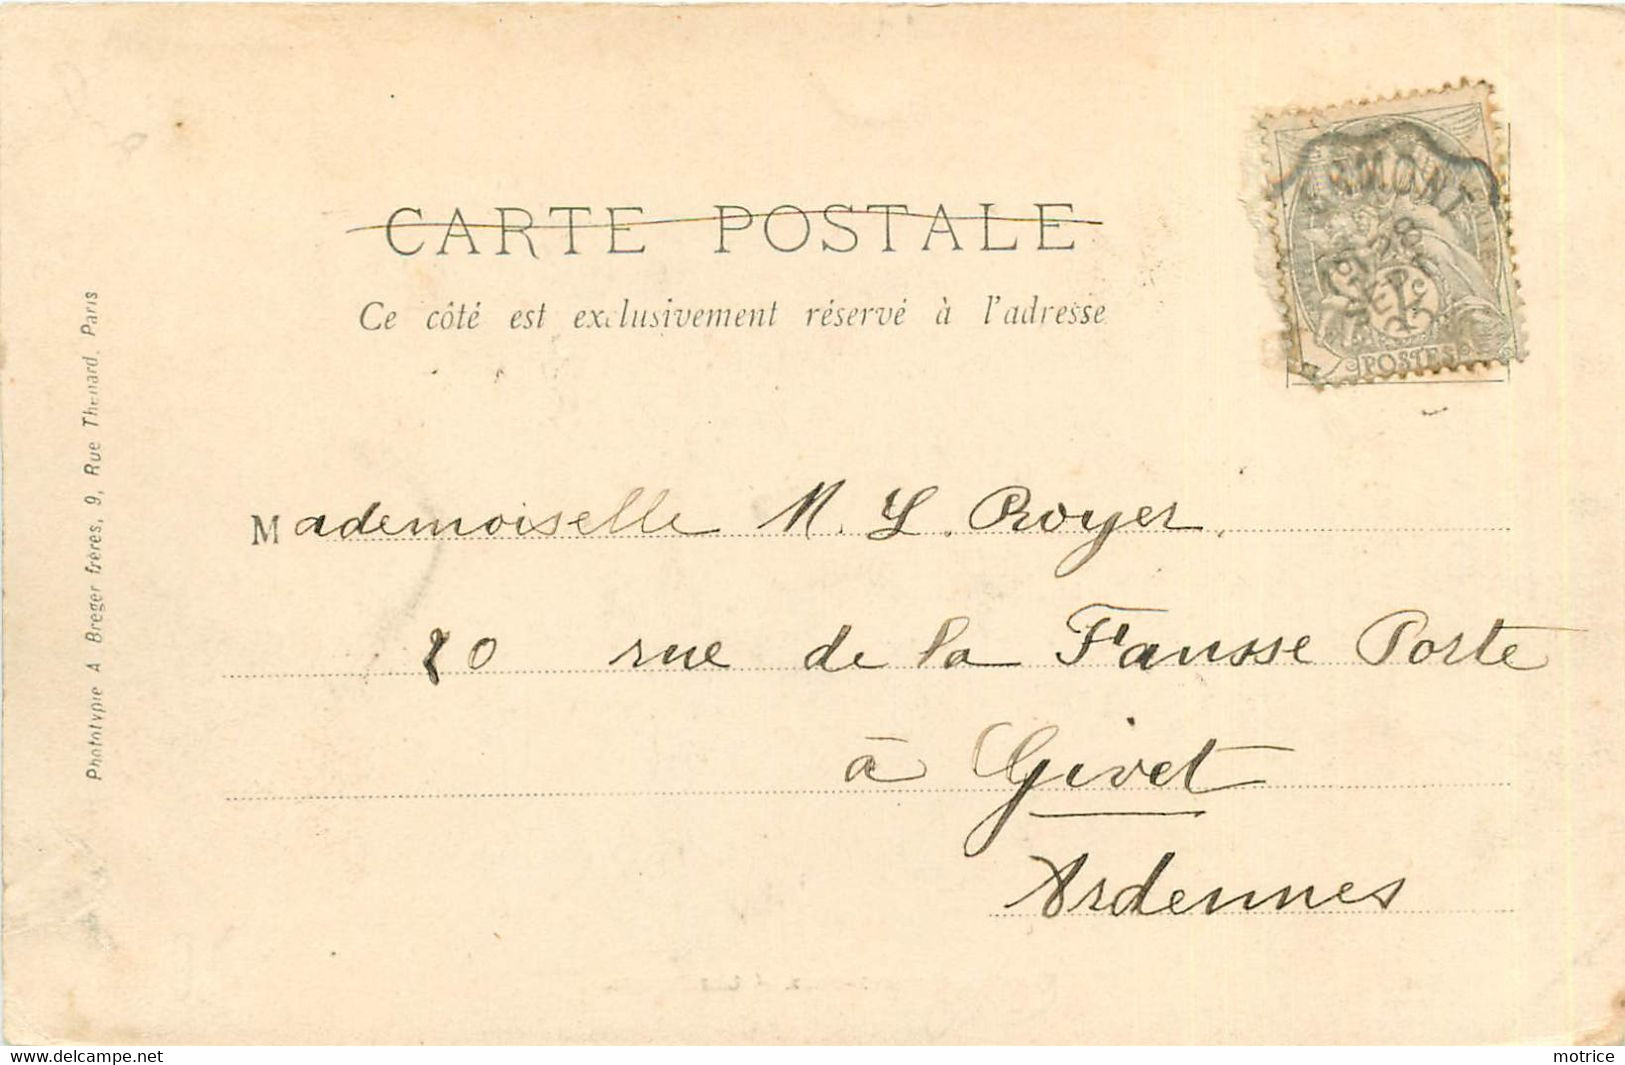 CARTE POSTALE
Ce côté est exclusivement réservé à l'adresse
POSTES
Mademoiselle M. L. Royer.
rue de la Fausse Porte
à Givet
Ardennes
Phototypie A Breger frères, 9, Rue Thenard, Paris
delcampe.net
motrice